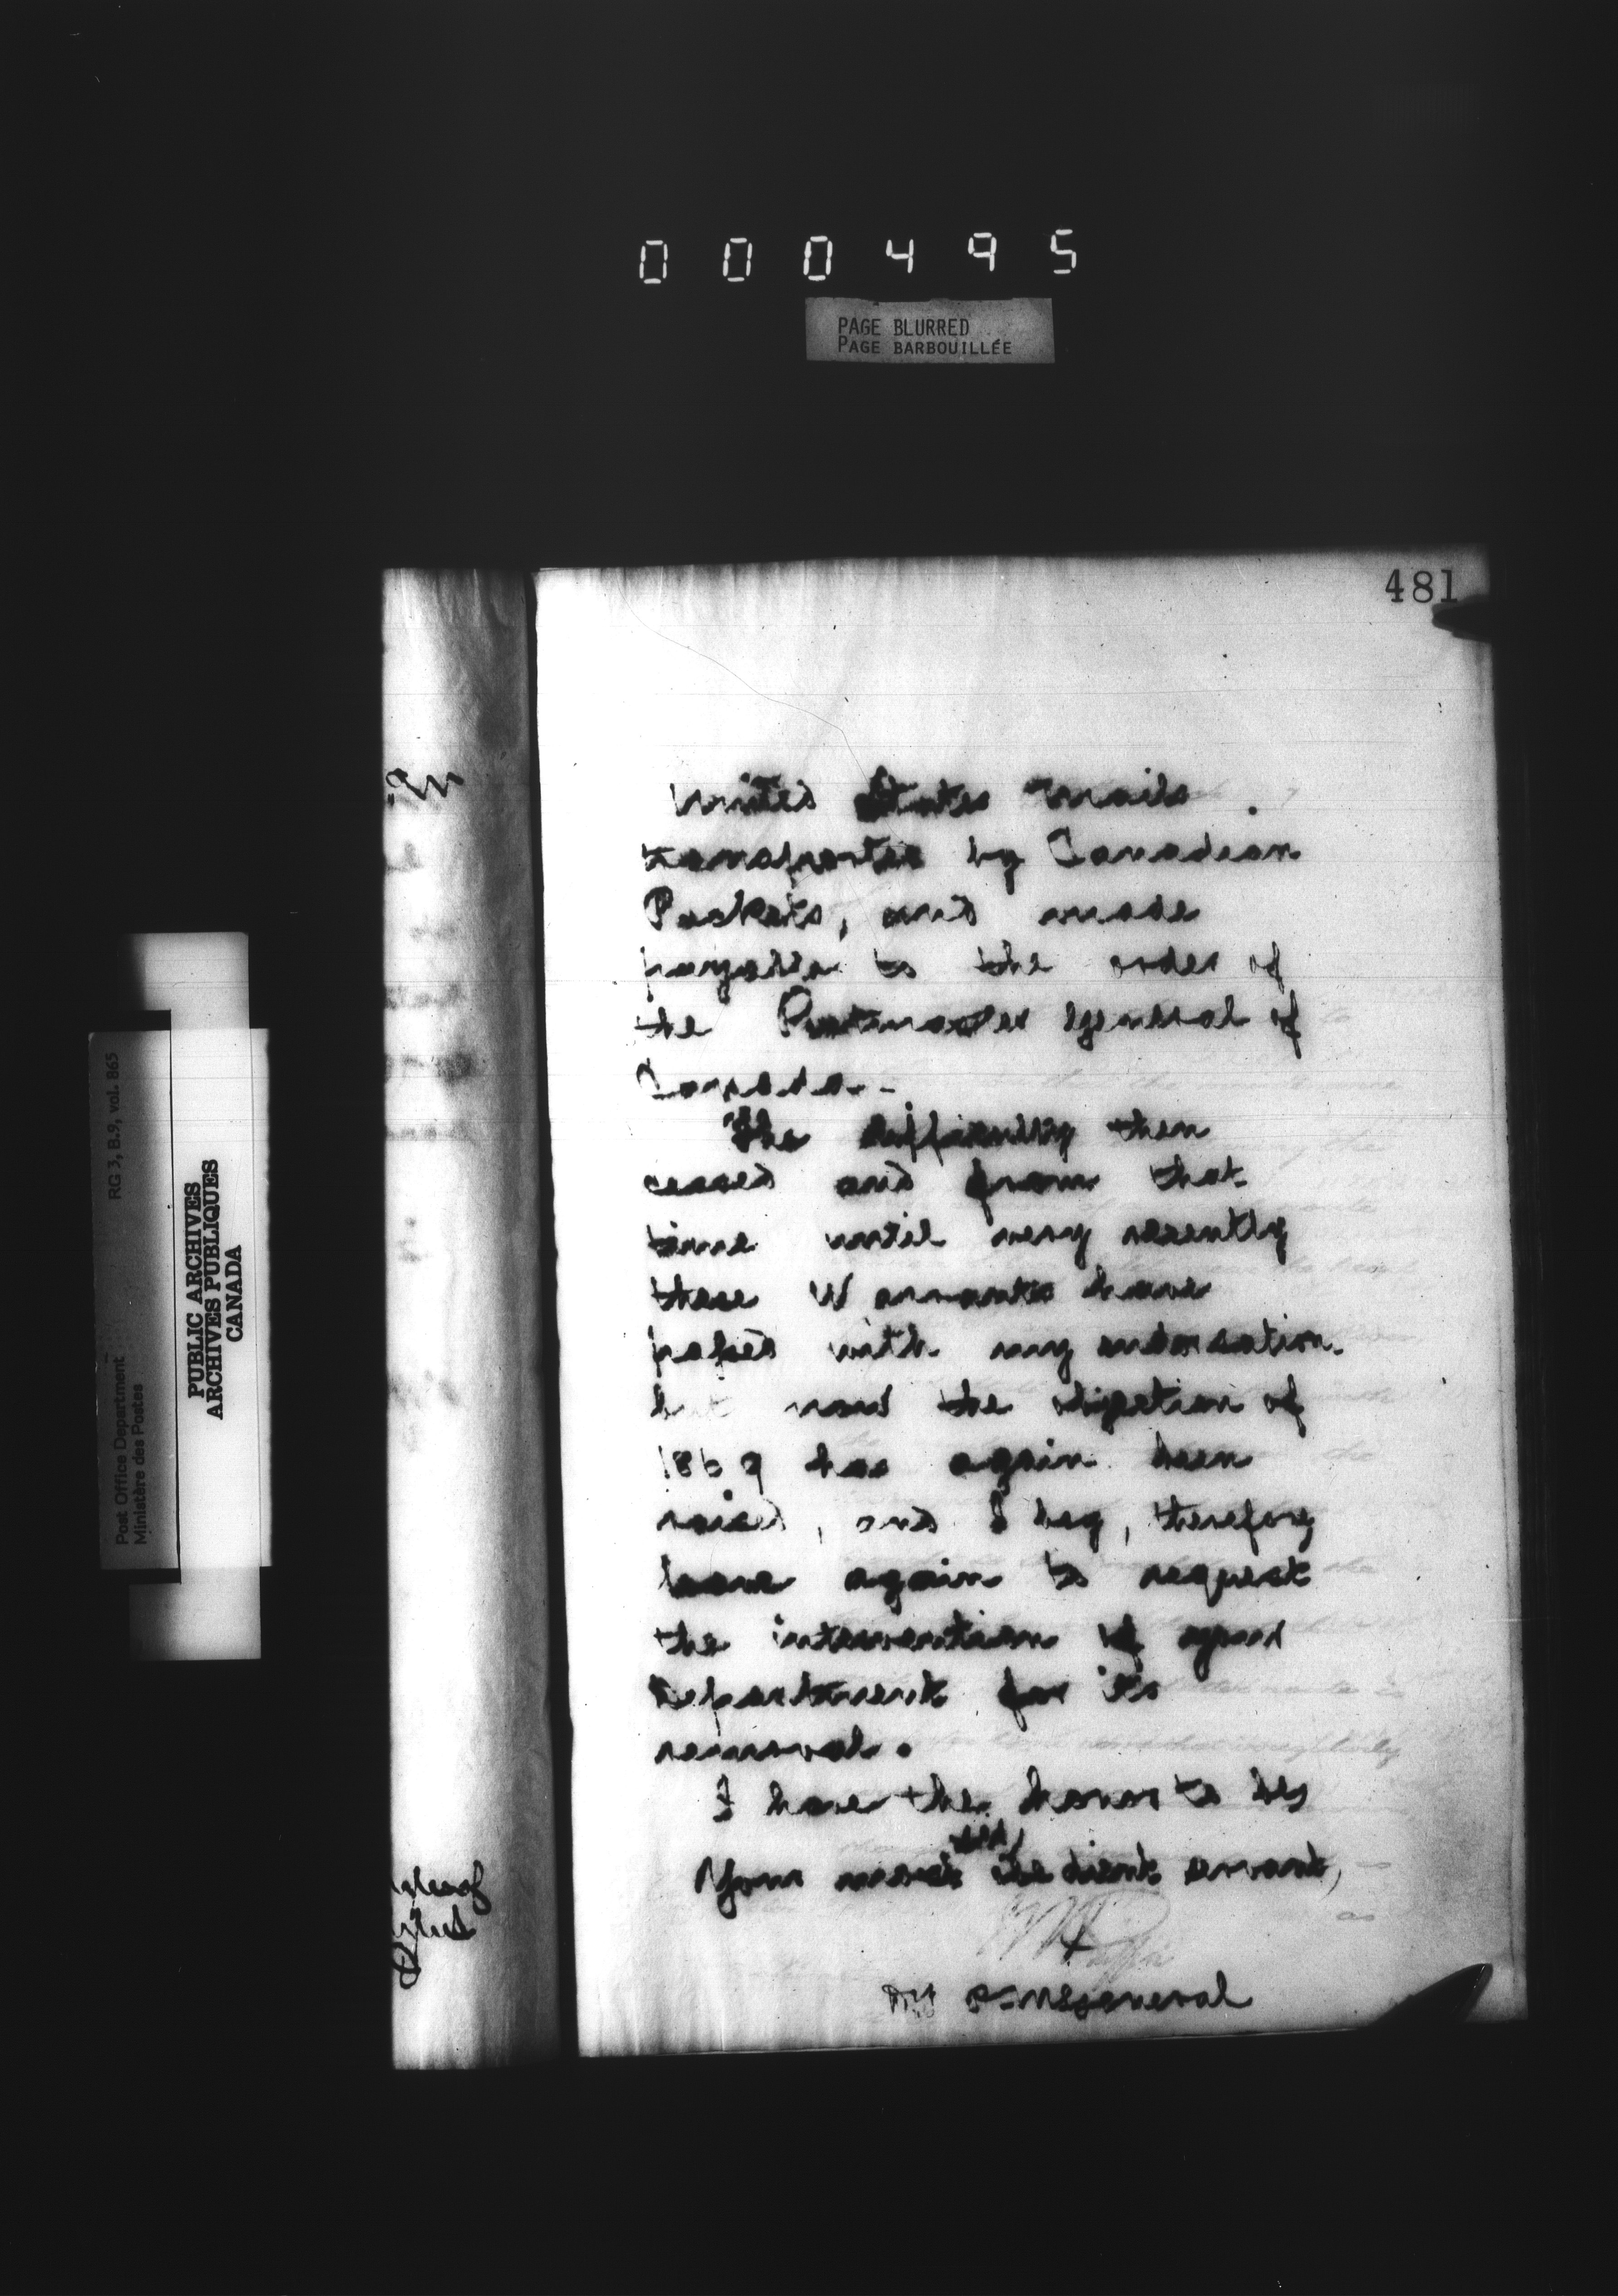 000495
PAGE BLURRED
PAGE BARBOUILLÉE
481
United States mails
transported by Canadian
Packets, and made
payable to the order of
the Postmaster General of
Canada.-
The difficulty then
ceased and from that
time until very recently
these Warrants have
passed with my endorsation.
but now the objection of
1869 has again been
raised, and I beg, therefore
leave again to request
the intervention of your
Department for its
removal.
I have the honor to be,
Your most obedient servant,
General
RG 3, B.9, vol. 865
Post Office Department
Ministère des Postes
PUBLIC ARCHIVES
ARCHIVES PUBLIQUES
CANADA